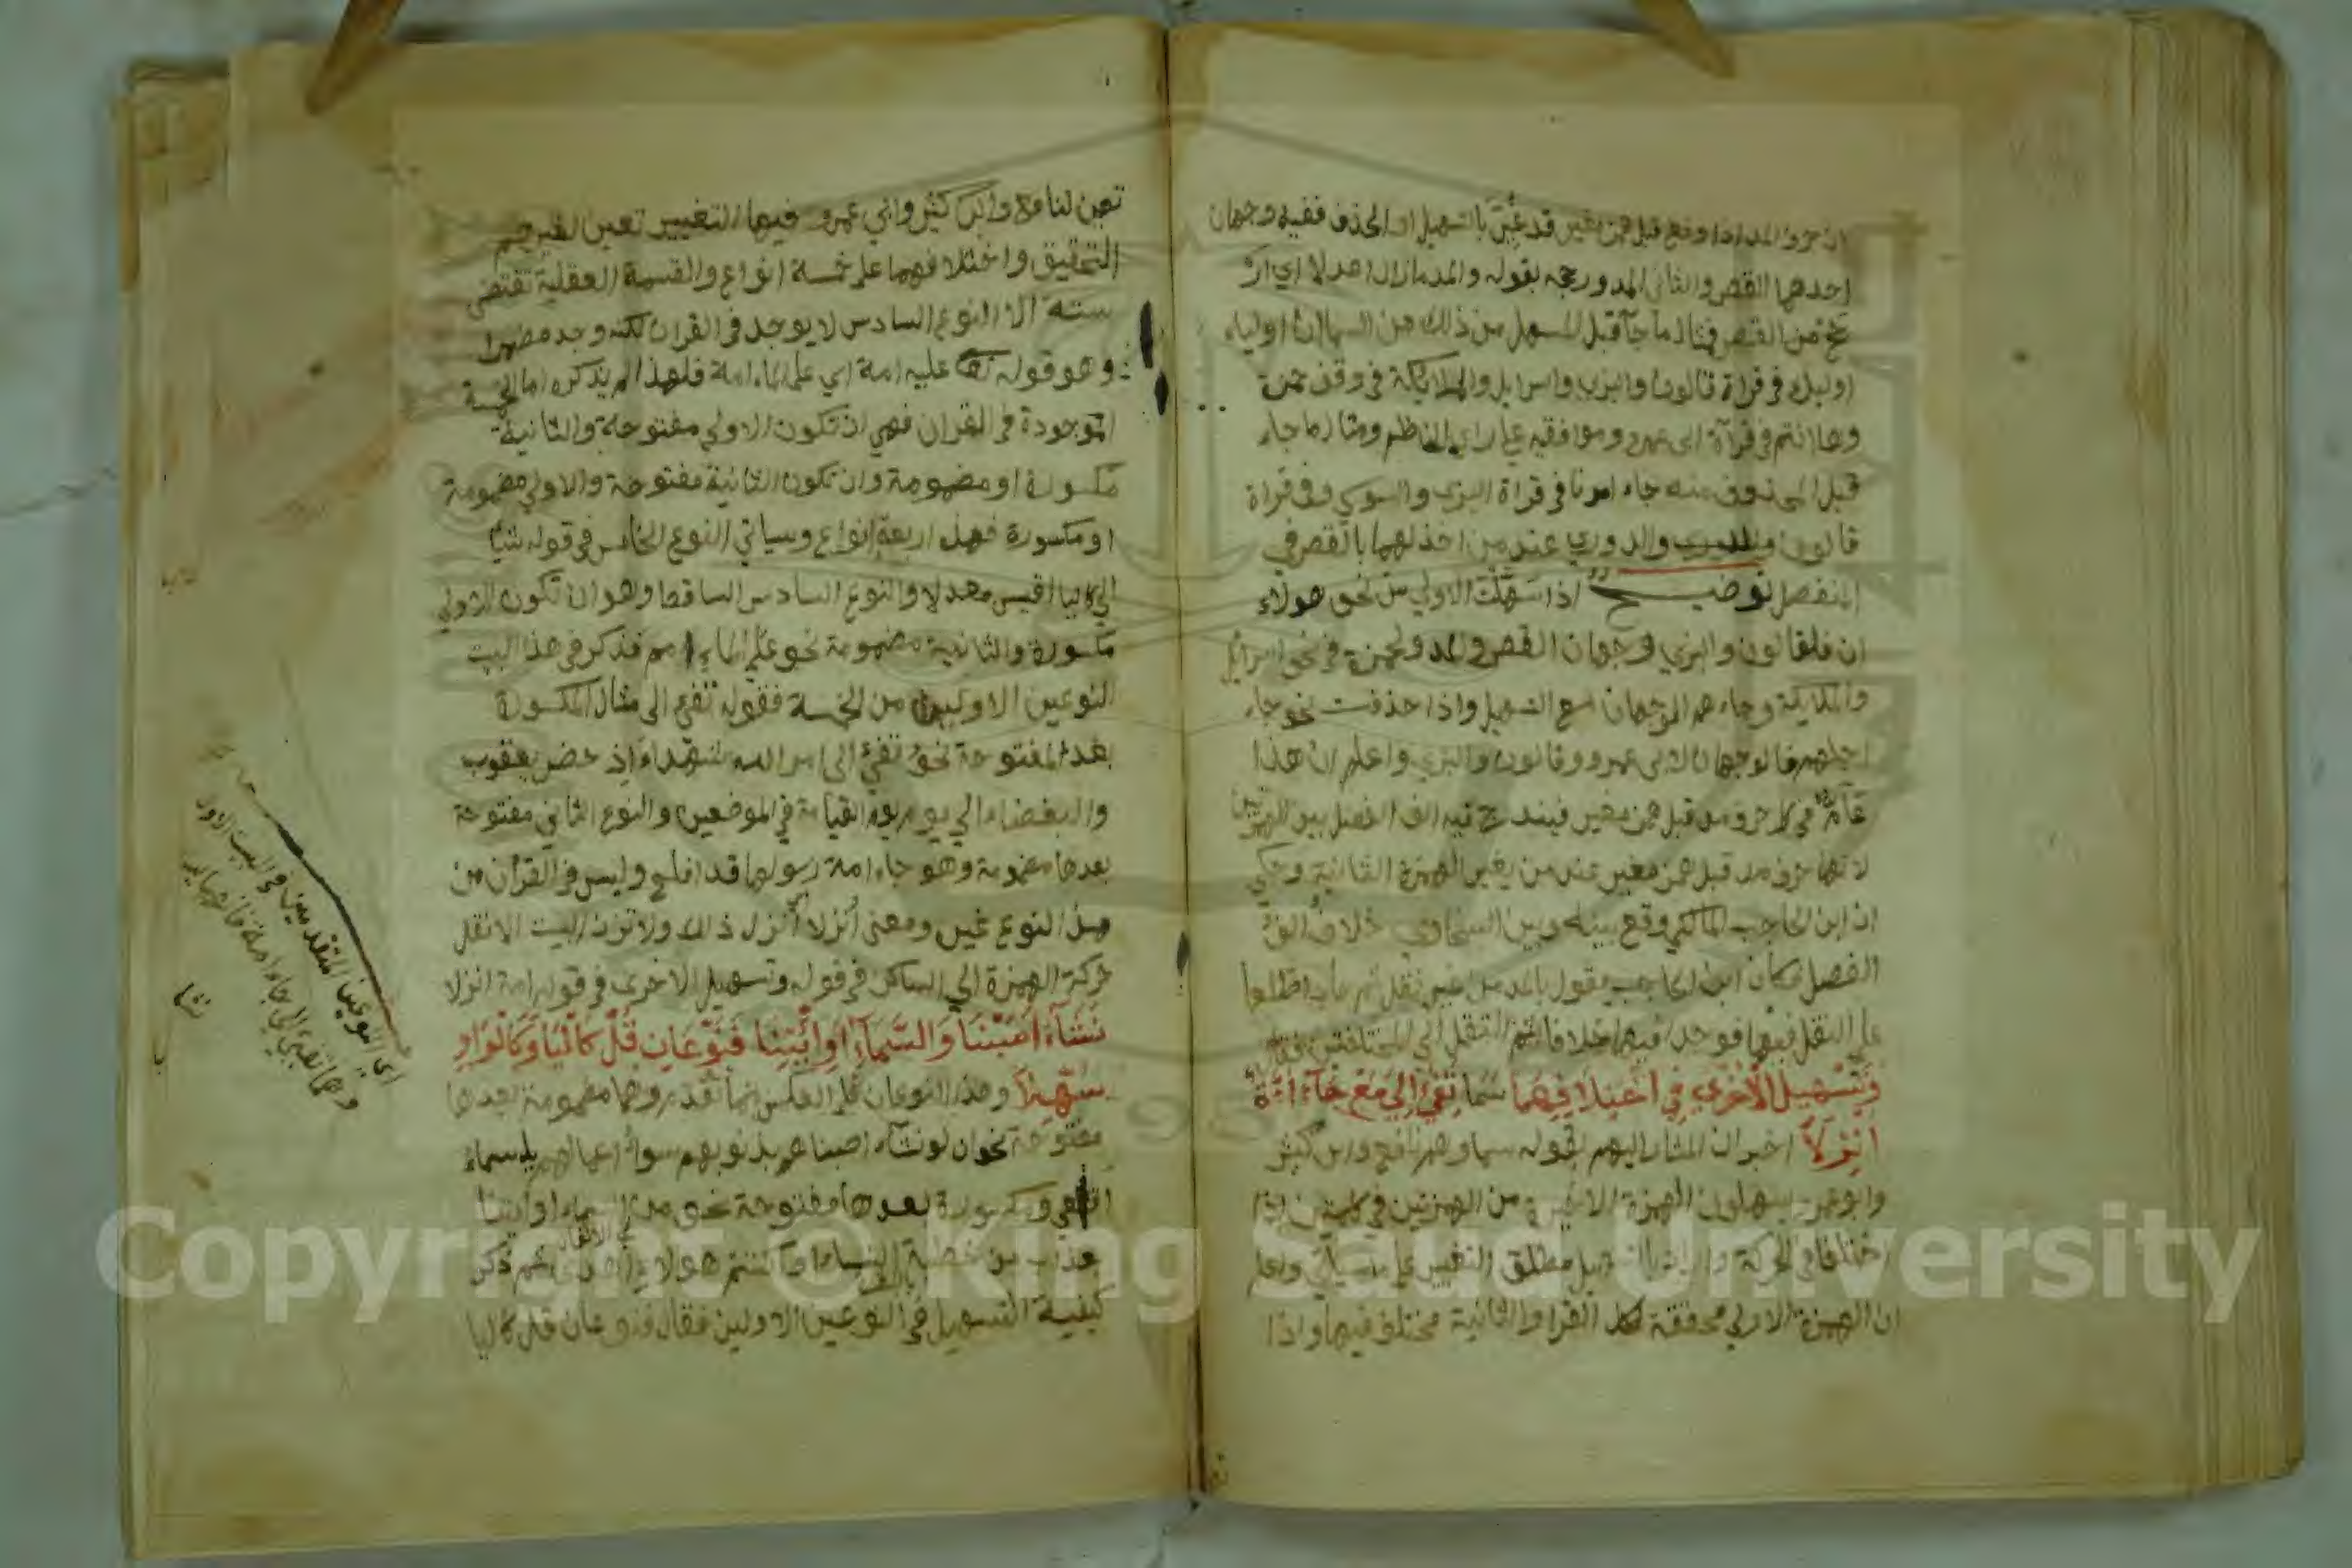 ان حرف المد اذا وقع قبل همز مغير قد غُيِّرَ بالتسهيل او الحذف ففيه وجهان
احدهما القصر والثاني المد ورجحه بقوله والمد مازال اعدلا اي ارجح
من القصر فمثال ما جآ قبل المسهل من ذلك من السماء ان اولياء
اوليك في قراة قالون والبزي واسرايل والملايكة في وقف حمزة
وها انتم في قرآة ابي عمرو وموافقيه علي راي الناظم ومثال ما جاء
قبل المحذوف منه جاء امرنا في قراة البزي والسوسي وفي قراة
قالون والدوري عند من اخذ لهما بالقصر في
المنفصل توضيح اذا سهلت الاولي من نحو هولاء
ان فلقالون والبزي وجهان القصر والمد ولحمزة في نحو اسرائيل
والملايكة وجاءهم الوجهان مع التسهيل واذا حذفت نحو جاء
اجلهم فالوجهان لابي عمرو وقالون والبزي واعلم ان هذا
عآمٌّ في كل حرف مد قبل همز مغير فيندرج فيه الف الفصل بين الهمزتين
لانها حرف مد قبل همز مغير عند من يغير الهمزة الثانية وحكي
ان ابن الحاجب المالكي وقع بينه وبين السخاوي خلاف الف
الفصل فكان ابن الحاجب يقول بالمد من غير نقل ثم اطلعا
علي النقل فيها فوجدا فيها خلافا ثم انتقل الي المختلفتين فقال
وَتَسْهِيلُ الْأُخْرَي فِي اخْتِلَافِهِمَا سَمَا تَفِيْءَ إِلَى مَعْ جَآءَ أُمَّةً
انْزِلَا اخبر ان المشار اليهم بقوله سما وهم نافع وابن كثير
وابو عمرو يسهلون الهمزة الاخيرة من الهمزتين في كلمتين اذا
اختلفا في الحركة والتسهيل مطلق التغيير علي ما سياتي واعلم
ان الهمزة الاولي محققة لكل القرا والثانية مختلف فيها واذا
تعين لنافع وابن كثير وابي عمرو فيها التغيير تعين لغيرهم
التحقيق واختلافهما علي خمسة انواع والقسمة العقلية تقتضي
ستة الا ان النوع السادس لا يوجد في القران لكنه وجد مضهرا
وهو قوله تعا عليه امة اي علي الماء امة فلهذا لم يذكره اما الخمسة
الموجودة في القران فهي ان تكون الاولي مفتوحة والثانية
مكسورة او مضمومة وان تكون الثانية مفتوحة والاولي مضمومة
او مكسورة فهذه اربعة انواع وسياتي النوع الخامس في قوله يشآ
الي كاليا اقيس معدلا والنوع السادس الساقط وهو ان تكون الاولي
مكسورة والثانية مضمومة نحو علي الماء امم فذكر في هذا البيت
النوعين الاولين من الخمسة فقوله تفيء الي مثال المكسورة
بعد المفتوحة نحو تفيءَ الي امر الله شهداءَ اذ حضر يعقوب
والبغضاء الي يوم القيامة في الموضعين والنوع الثاني مفتوحة
بعدها مضمومة وهو جاء امة رسولها قد افلح وليس في القرآن من
هذا النوع غيره ومعني أنزلا أنزل ذلك ولا تزن البيت الا بنقل
حركة الهمزة الي الساكن في قوله وتسهيل الاخرى في قوله امة انزلا
نَشَآءُ أَصَبْنَا وَالسَّمَآءِ أَوِ ائْتِنَا فَنَوْعَانِ قُلْ كَالْيَا وَكَالْوَاوِ
سُهِّلَا وهذا النوعان علي العكس مما تقدم وهما مضمومة بعدها
مفتوحة نحو ان لو نشآء اصبناهم بذنوبهم سوءُ اعمالهم يا سماءُ
اقلعي ومكسورة بعدها مفتوحة نحو من السماء او ايتنا
بعذاب من خطبة النساء او اكننتم هولاء اهدى ثم ذكر
كيفية التسهيل في النوعين الاولين فقال فنوعان قل كاليا
اي النوعين المتقدمين في البيت الاول
وهما تفيء الي وجاء امة فانهما